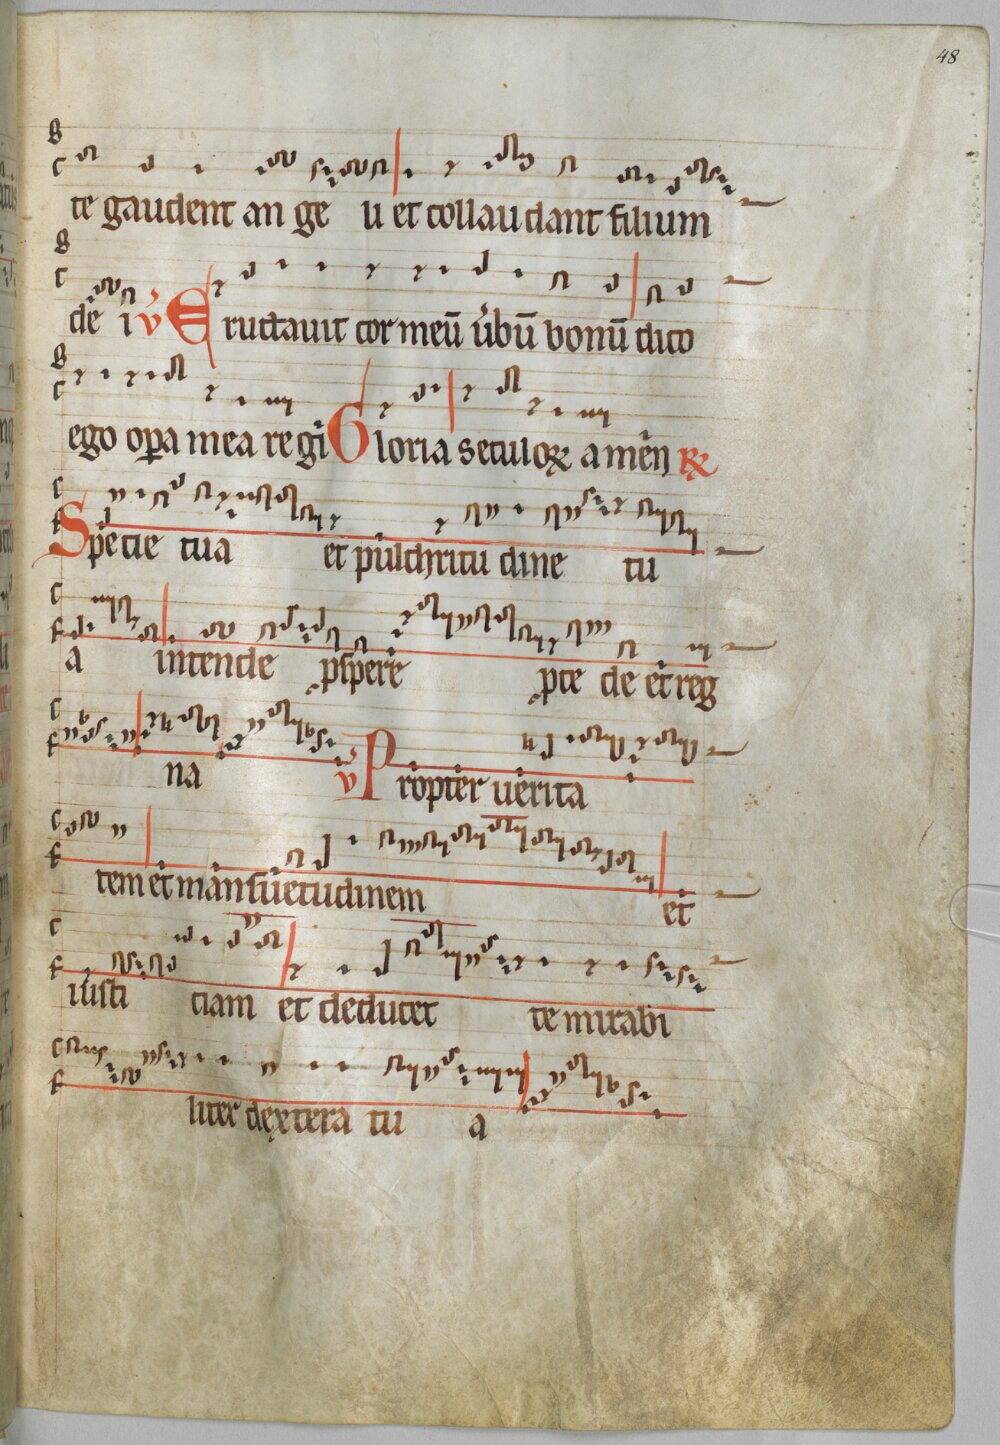 48
te gaudent an ge li et collaudant filium
de i ℣ Eructauit cor meū ūbū bonū dico
ego oꝑa mea regi Gloria seculoꝝ amen ℟
Specie tua et pulchritu dine tu
a intende ꝓspere ꝓce de et reg
na ℣ Propter uerita
tem et mansuetudinem et
iusti ciam et deducet te mirabi
liter dextera tu a